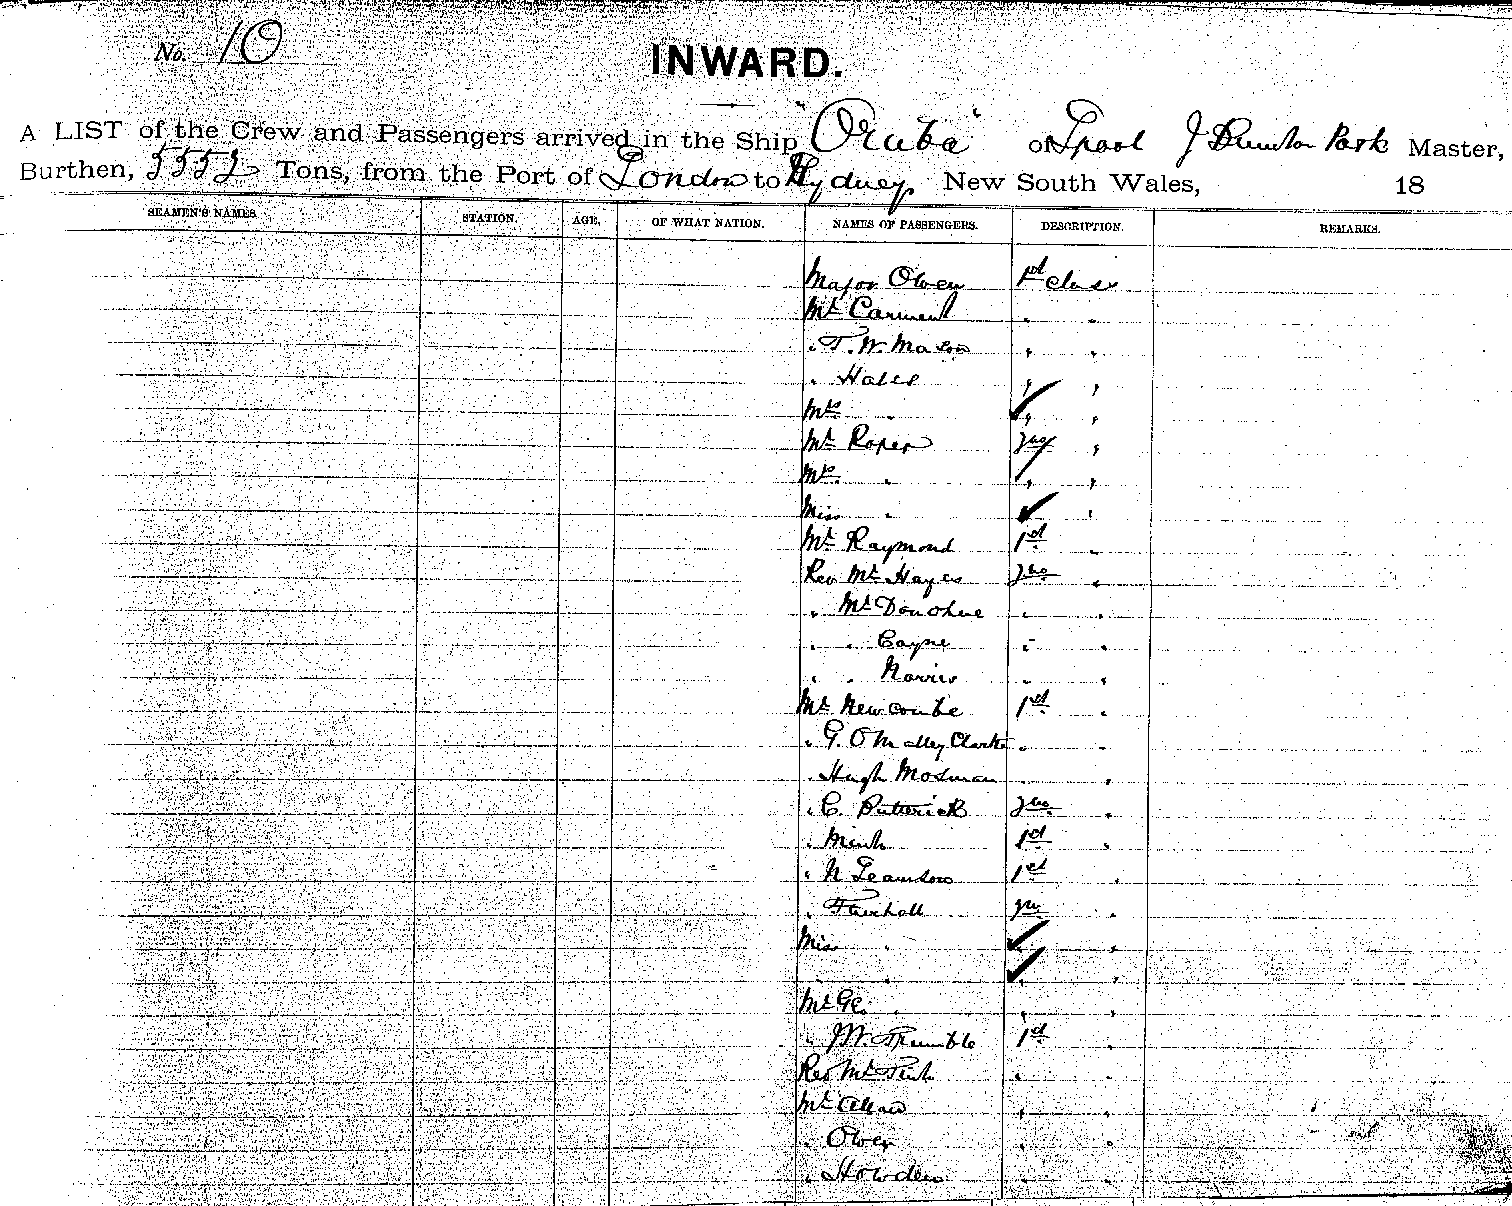 No. 10
INWARD.
A LIST of the Crew and Passengers arrived in the Ship "Oruba" of Lpool J Master,
Burthen, 5552 Tons, from the Port of London to Sydney, New South Wales, 18
SEAMEN'S NAMES. STATION. AGE. OF WHAT NATION. NAMES OF PASSENGERS. DESCRIPTION. REMARKS.
Major Owen 1st class
Mr Carment " "
" T. W. Mason " "
" Hales " "
Mrs " " "
Mr Roper 2nd "
Mrs " " "
Miss " "
Mr Raymond 1st "
Rev Mr Hayes 2nd "
" Mr Donohue " "
" " Coyne " "
" " Norris " "
Mr Newcombe 1st "
" G. O'Malley Clarke " "
" Hugh Mosman " "
" C. Butterick 2nd "
" 1st "
" N 1st "
" 2nd "
Miss " "
" " "
Mr Geo. " " "
" J W. Trumble 1st "
Rev Mr " "
Mr " "
" Owen " "
" Howden " "